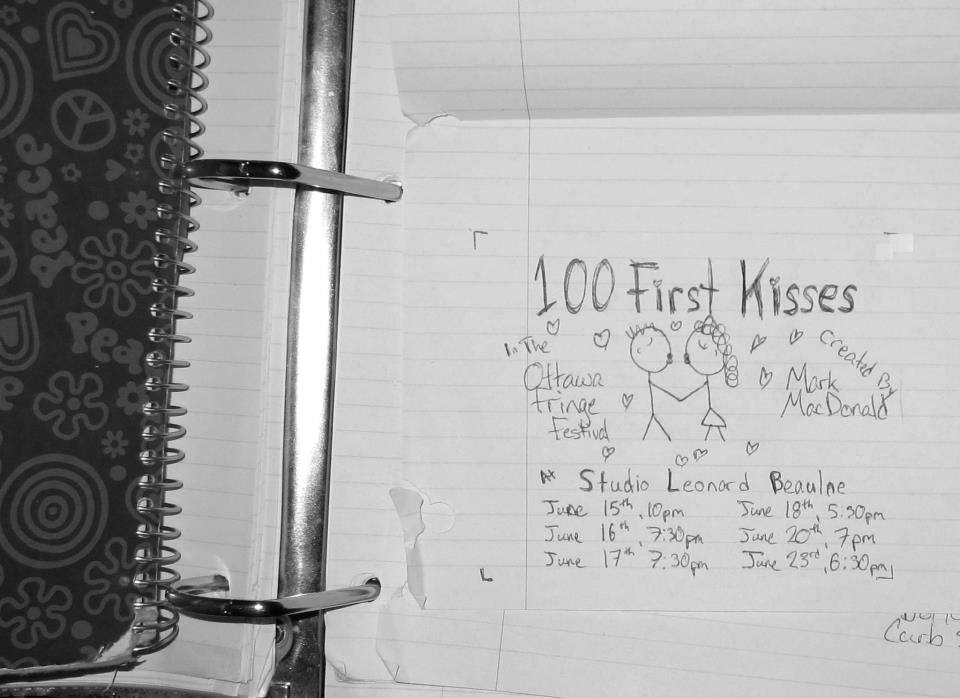 Peace
Pea
100 First Kisses
In The
Ottawa
Fringe
Festival
Created By
Mark
MacDonald
At Studio Leonard Beaulne
June 15th, 10pm
June 16th, 7:30pm
June 17th 7:30pm
June 18th, 5:30pm
June 20th, 7pm
June 23rd, 6:30pm
Carb